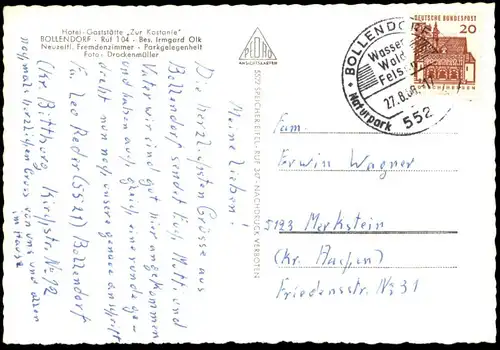 Hotel-Gaststätte „Zur Kastanie"
BOLLENDORF - Ruf 104 - Bes. Irmgard Olk
Neuzeitl. Fremdenzimmer - Parkgelegenheit
Foto: Drockenmüller
ANSICHTSKARTEN
5522 SPEICHER/EIFEL · RUF 387 · NACHDRUCK VERBOTEN
BOLLENDORF
Wasser
Wald
Felsen
27.8.68
Naturpark
552
DEUTSCHE BUNDESPOST
20
Meine Lieben!
Die herzlichsten Grüsse aus
Bollendorf sendet Euch Mutti und
Vater wir sind gut hier angekommen
und haben auch gleich eine runde ge-
dreht nun noch unsere genaue anschrift
Fa. Leo Reder (5521) Bollendorf
(Kr. Bittburg Kirchstr. No 92
nochmal herzlichen Gruss von uns und allen
im Hause
Fam.
Erwin Wagner
5123 Merkstein
(Kr. Aachen)
Friedensstr. No 31